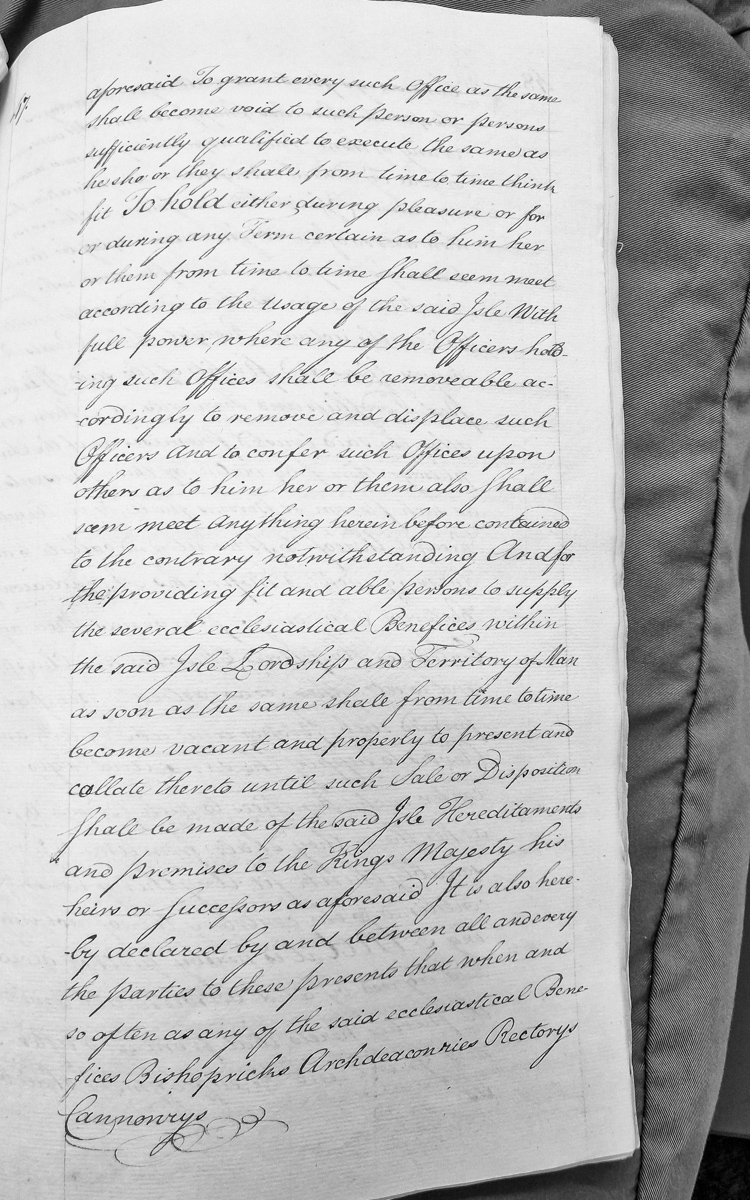 aforesaid To grant every such Office as the same
shall become void to such person or persons
sufficiently qualified to execute the same as
he she or they shall from time to time think
fit To hold either during pleasure or for
or during any Term certain as to him her
or them from time to time shall seem meet
according to the Usage of the said Isle With
full power where any of the Officers hold-
-ing such Offices shall be removeable ac-
-cordingly to remove and displace such
Officers And to confer such Offices upon
others as to him her or them also shall
seem meet Anything herein before contained
to the contrary notwithstanding And for
the providing fit and able persons to supply
the several ecclesiastical Benefices within
the said Isle Lordship and Territory of Man
as soon as the same shall from time to time
become vacant and properly to present and
collate thereto until such Sale or Disposition
shall be made of the said Isle Hereditaments
and premises to the Kings Majesty his
heirs or Successors as aforesaid It is also here-
-by declared by and between all and every
the parties to these presents that when and
so often as any of the said ecclesiastical Bene-
fices Bishopricks Archdeaconries Rectorys
Cannonrys